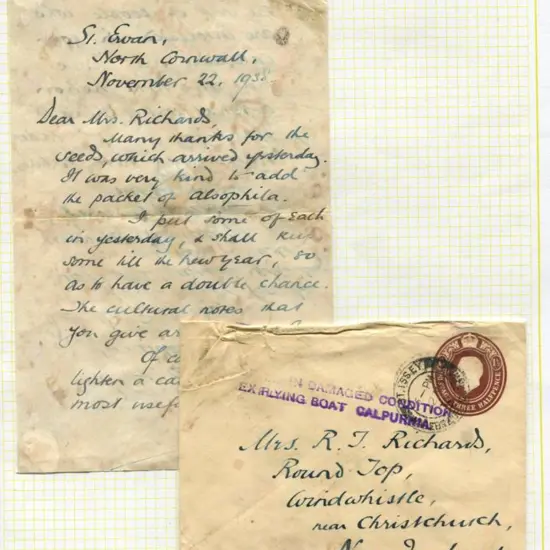 St. Ervan,
North Cornwall,
November 22, 1938
Dear Mrs. Richards,
Many thanks for the
seeds, which arrived yesterday.
It was very kind to add
the packet of Alsophila.
I put some of each
in yesterday, & shall keep
some till the new year, so
as to have a double chance.
The cultural notes that
you give ar
Of c
lighten a ca
most usef
IN DAMAGED CONDITION
EX FLYING BOAT CALPURNIA
ST. ISSEY
THREE HALFPENCE
Mrs. R. T. Richards,
Round Top,
Windwhistle,
near Christchurch,